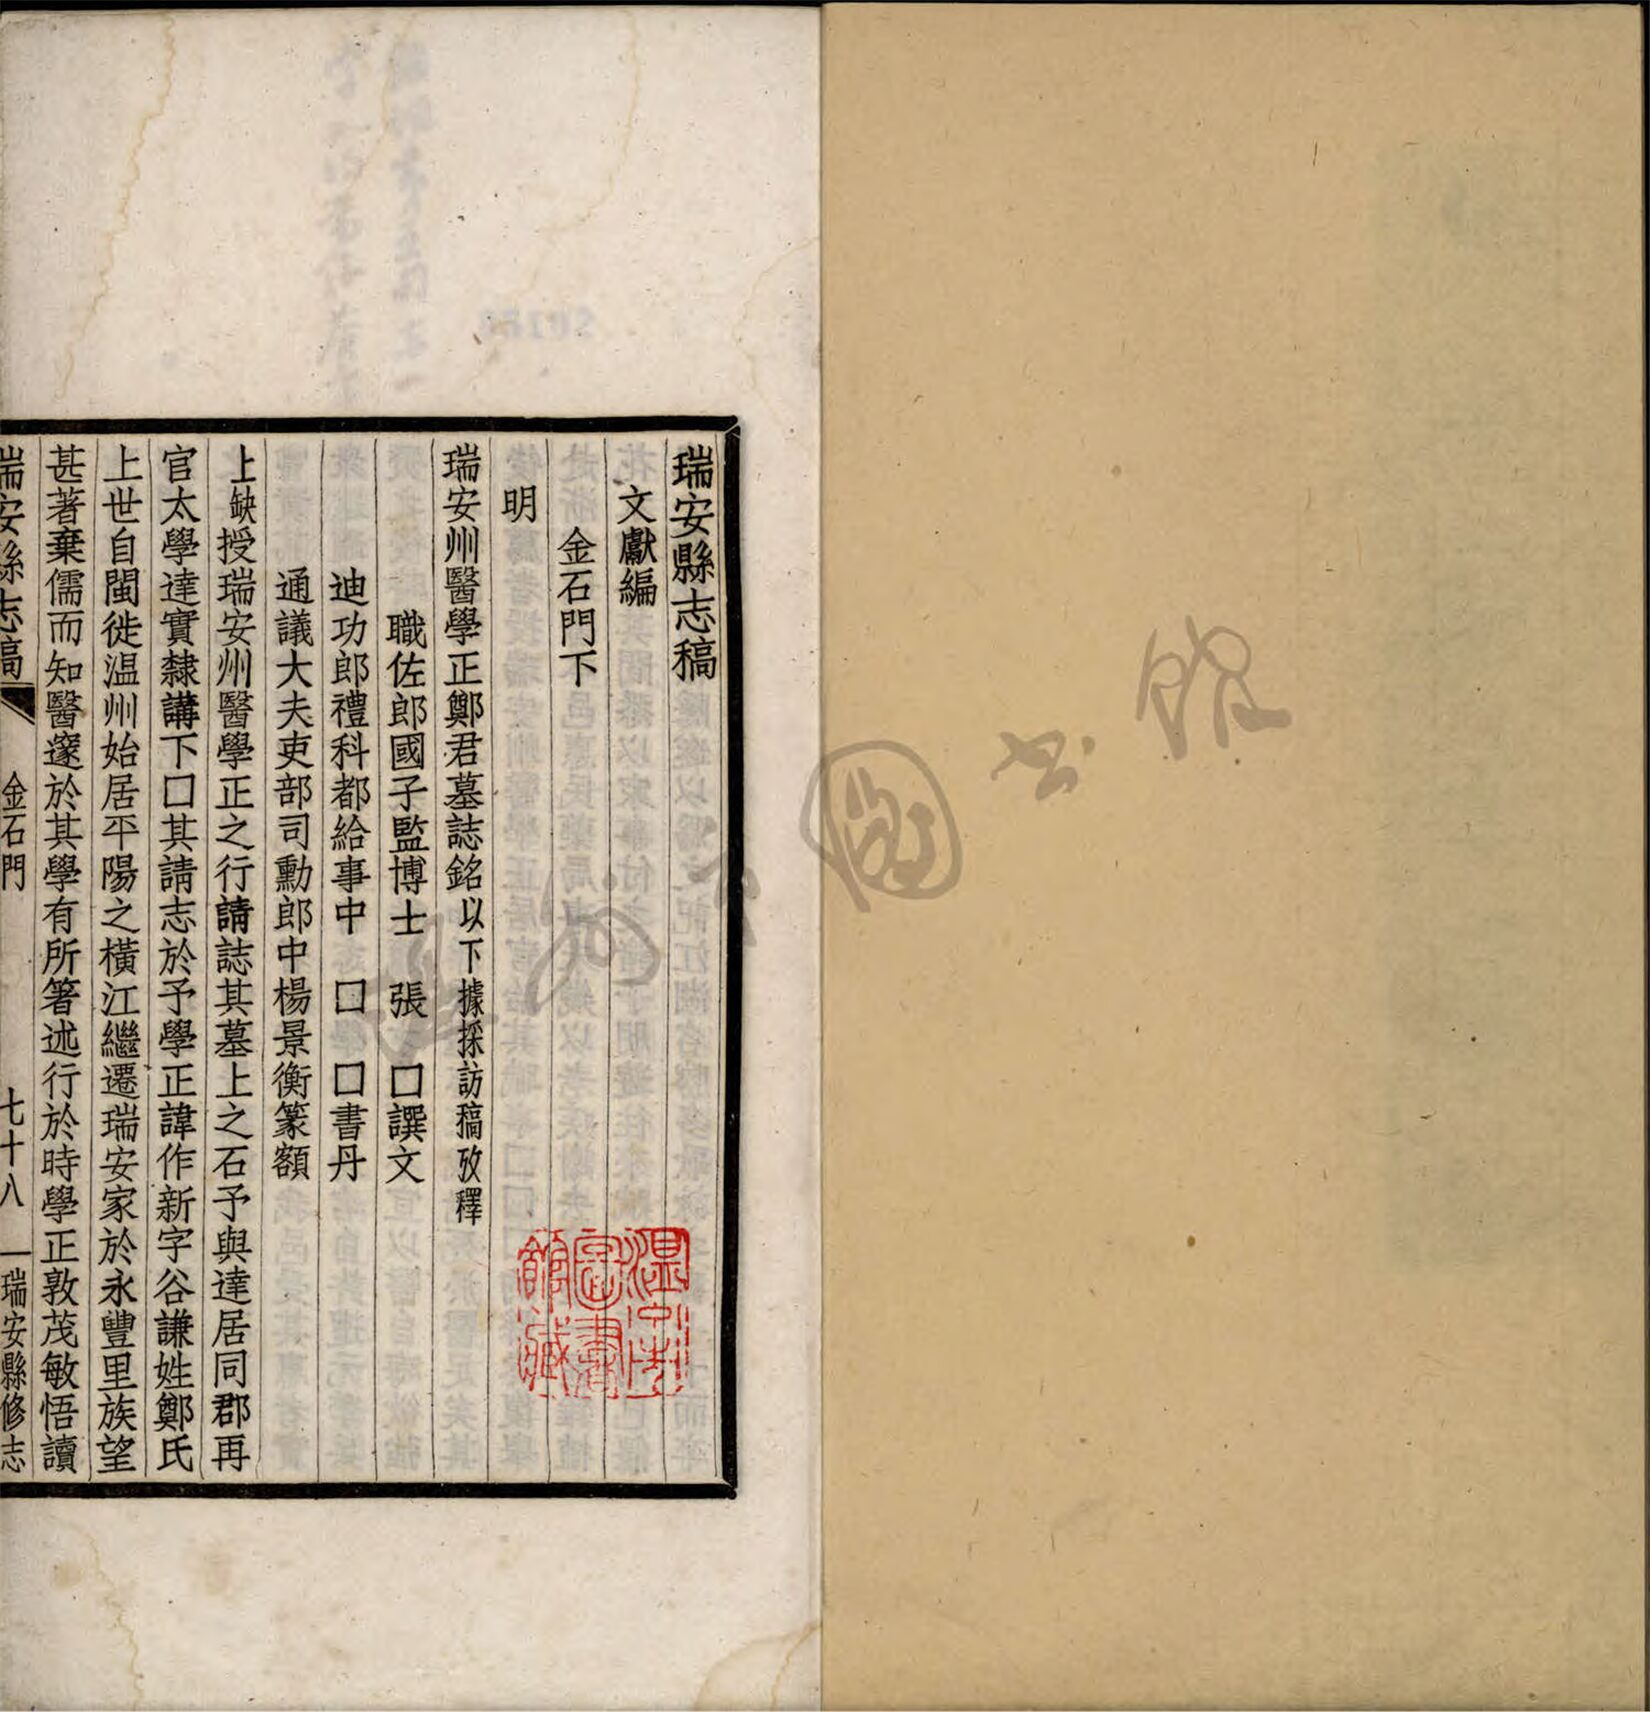 瑞安縣志稿
文獻編
金石門下
明
瑞安州醫學正鄭君墓誌銘以下據採訪稿攷釋
職佐郎國子監博士 張 囗譔文
迪功郎禮科都給事中 囗 囗書丹
通議大夫吏部司勳郎中楊景衡篆額
上缺授瑞安州醫學正之行請誌其墓上之石予與達居同郡再
官太學達實隸講下囗其請志於予學正諱作新字谷謙姓鄭氏
上世自閩徙温州始居平陽之橫江繼遷瑞安家於永豐里族望
甚著棄儒而知醫邃於其學有所箸述行於時學正敦茂敏悟讀
瑞安縣志稿 金石門 七十八 瑞安縣修志
溫州市
圖書
館藏
圖書館